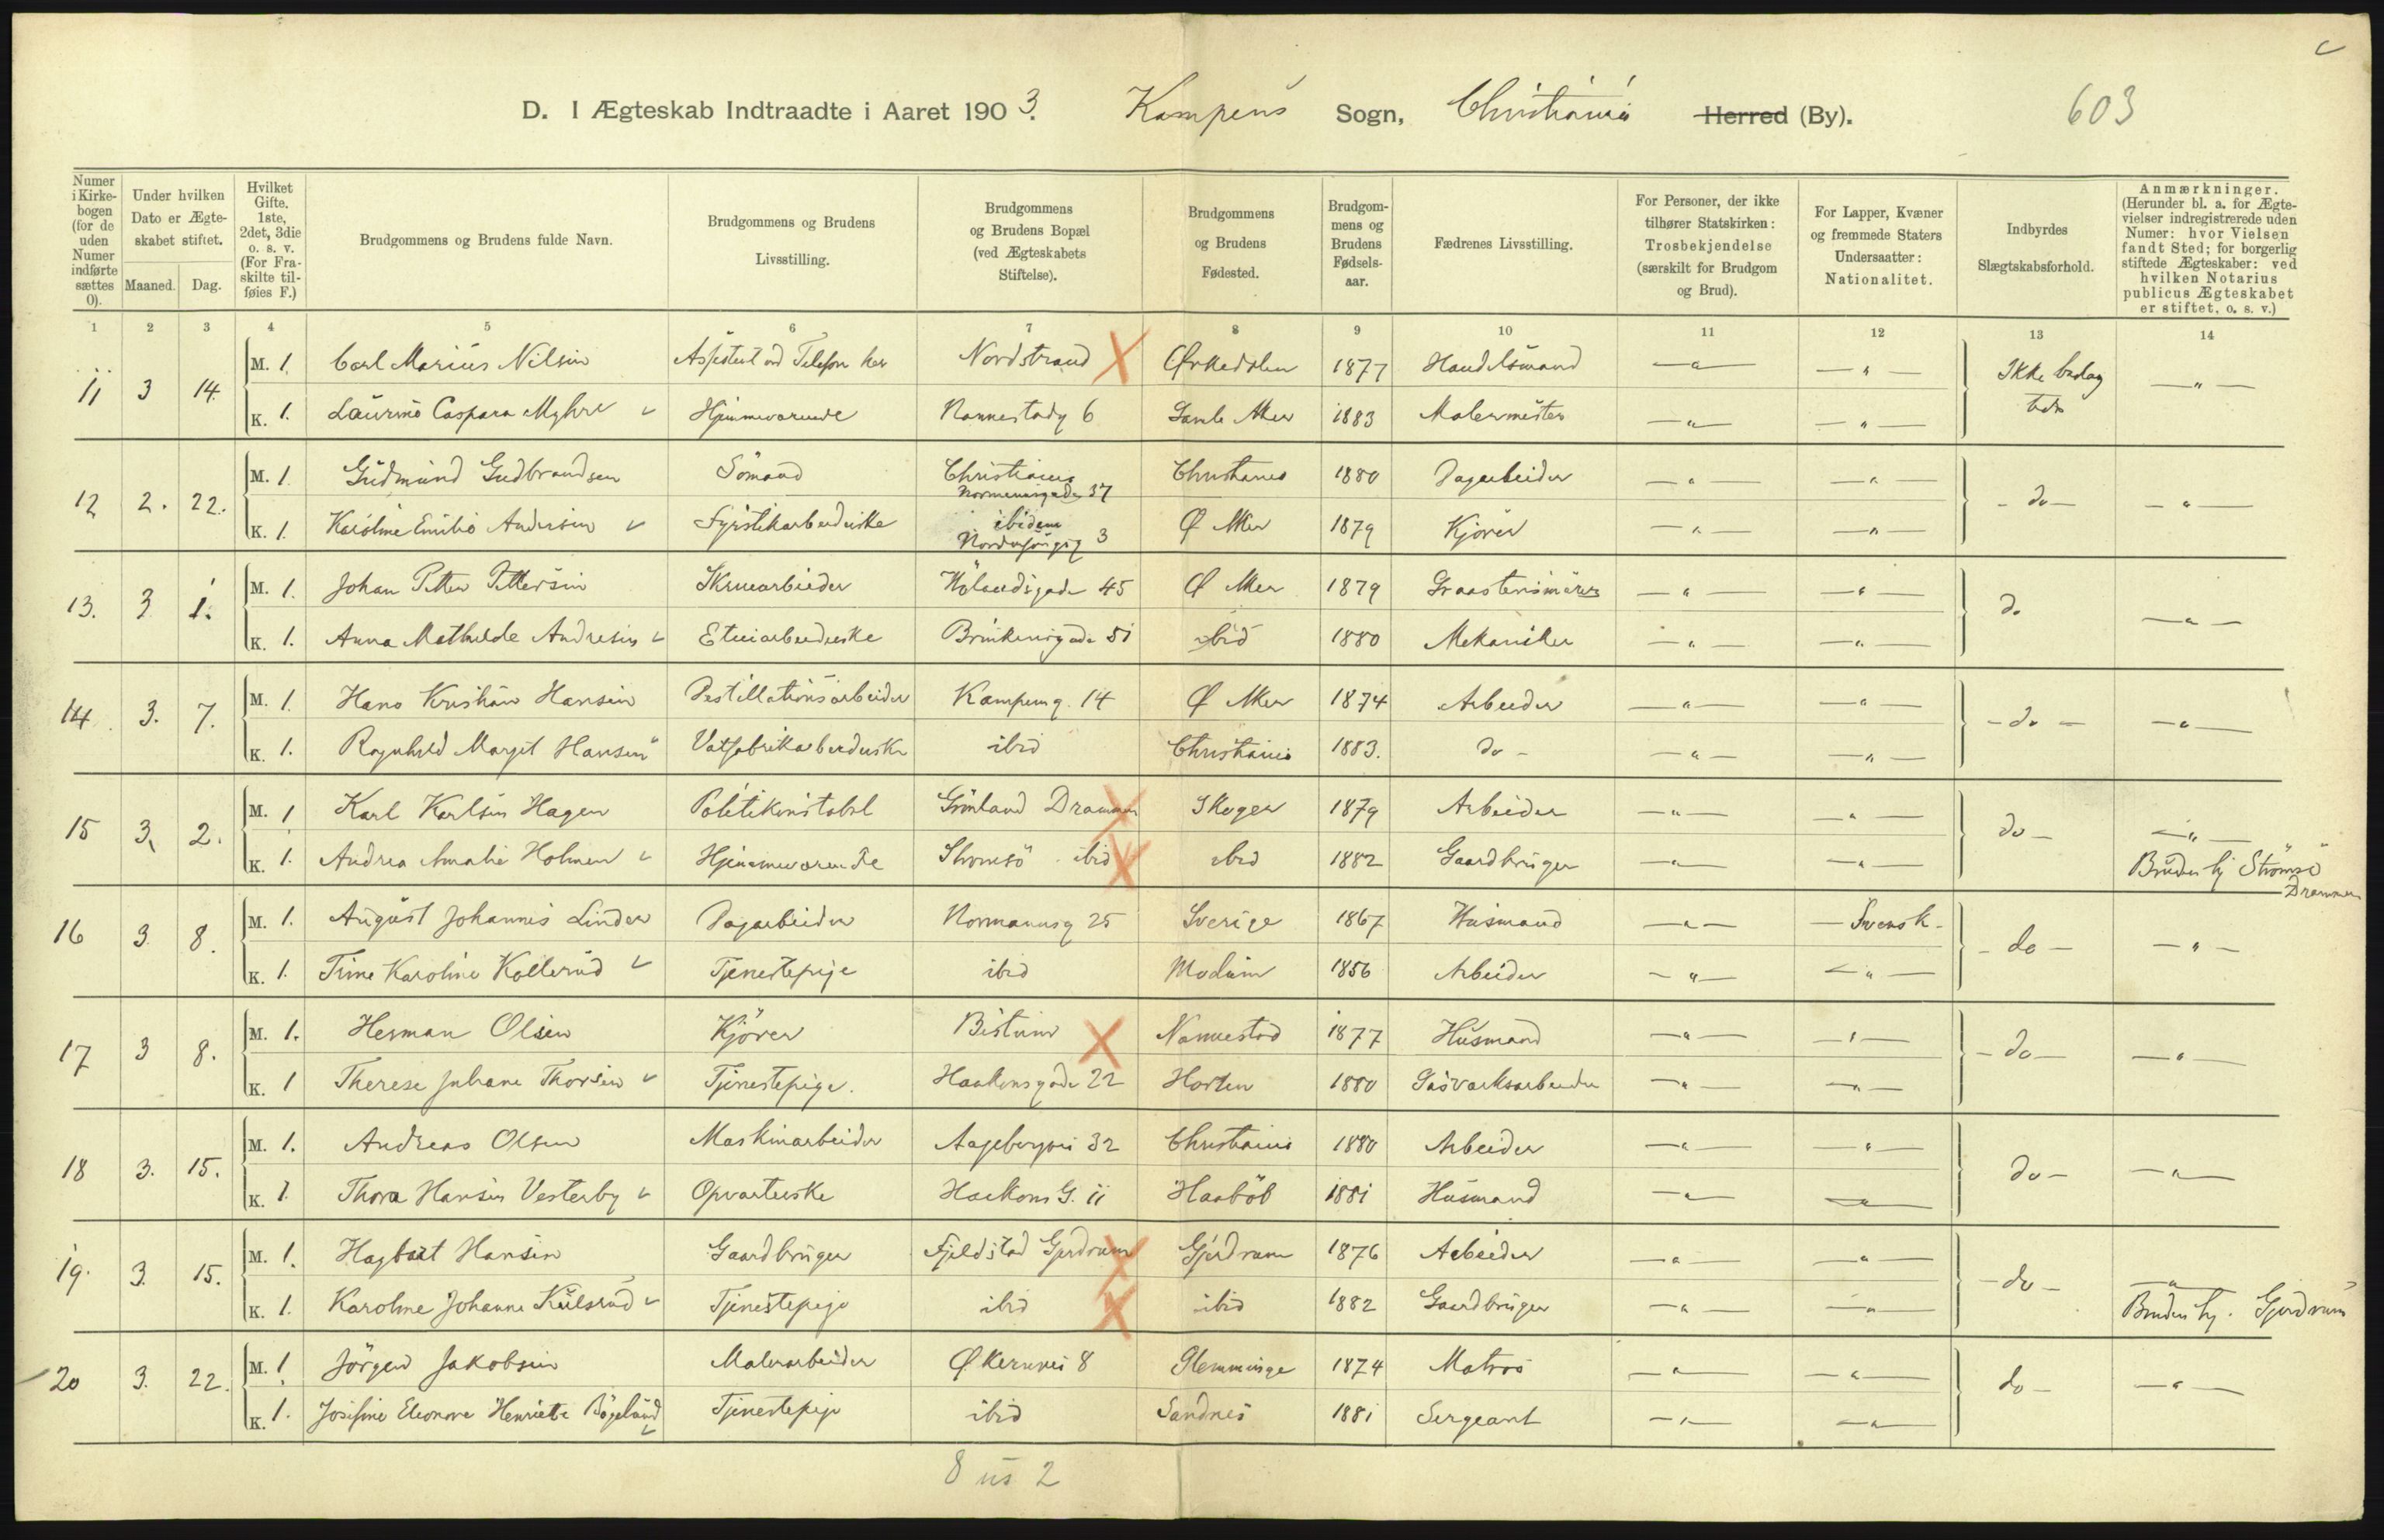 D. I Ægteskab Indtraadte i Aaret 1903. Kampens Sogn, Christiania Herred (By). 603
Numer i Kirkebogen (for de uden Numer indførte sættes 0). Under hvilken Dato er Ægteskabet stiftet. Maaned. Dag. Hvilket Gifte, 1ste, 2det, 3die o. s. v. (For Fraskilte tilføies F.) Brudgommens og Brudens fulde Navn. Brudgommens og Brudens Livsstilling. Brudgommens og Brudens Bopæl (ved Ægteskabets Stiftelse). Brudgommens og Brudens Fødested. Brudgommens og Brudens Fødselsaar. Fædrenes Livsstilling. For Personer, der ikke tilhører Statskirken: Trosbekjendelse (særskilt for Brudgom og Brud). For Lapper, Kvæner og fremmede Staters Undersaatter: Nationalitet. Indbyrdes Slægtskabsforhold. Anmærkninger. (Herunder bl. a. for Ægtevielser indregistrerede uden Numer: hvor Vielsen fandt Sted; for borgerlig stiftede Ægteskaber: ved hvilken Notarius publicus Ægteskabet er stiftet, o. s. v.)
1 2 3 4 5 6 7 8 9 10 11 12 13 14
11 3 14. M. 1. Carl Marius Nilsen Assistent ved Telefon Nordstrand Ørkedalen 1877 Handelsmand —"— —"— Ikke —"—
K. 1. Caspara Myhre Hjemmeværende Nannestadg 6 Gamle Aker 1883 Malermester —"— —"—
12 2. 22. M. 1. Gudmund Gudbrandsen Sömand Christiania Normannsgade 37 Christiania 1880 Dagarbeider —"— —"— - do - —"—
K. 1. Karoline Emilie Andersen Fyrstikarbeiderske ibidem 3 Ø Aker 1879 Kjörer —"— —"—
13. 3 1. M. 1. Johan Petter Pettersen Skruearbeider Hölandsgade 45 Ø Aker 1879 —"— —"— do —"—
K. 1. Anna Mathilde Andresen Etuiarbeiderske Brinkensgade 51 ibid 1880 Mekaniker —"— —"—
14. 3. 7. M. 1. Hans Kristian Hansen Destillationsarbeider Kampeng. 14 Ø Aker 1874 Arbeider —"— —"— - do - —"—
K. 1. Ragnhild Margit Hansen Vatfabrikarbeiderske ibid Christiania 1883. do - —"— —"—
15 3. 2. M. 1 Karl Karlsen Hagen Politikonstabel Grönland Drammen Skoger 1879 Arbeider —"— —"— do - —"—
K. 1. Andrea Amalie Holmen Hjemmeværende Strömsö ibid ibid 1882 Gaardbruger —"— —"— Brudens hj Strömsö Drammen
16 3. 8. M. 1. August Johannes Linder Dagarbeider Normannsg 25 Sverige 1867 Husmand —"— — Svensk - - do - —"—
K. 1. Trine Karoline Kollerud Tjenestepige ibid Modum 1856 Arbeider —"— —"—
17 3 8. M. 1. Herman Olsen Kjörer Nannestad 1877 Husmand —"— —"— - do - —"—
K. 1 Therese Juliane Thorsen Tjenestepige. Haakonsgade 22 Horten 1880 Gasværksarbeider —"— —"—
18 3. 15. M. 1. Andreas Olsen Maskinarbeider Aagebergvei 32 Christiania 1880 Arbeider —"— —"— do - —"—
K. 1. Thora Hansen Vesterby Opvarterske Haakons G. 11 Haaböl 1881 Husmand —"— —"—
19. 3. 15. M. 1. Hagbart Hansen Gaardbruger Fjeldstad Gjerdrum Gjerdrum 1876 Arbeider —"— —"— - do - —"—
K. 1. Karoline Johanne Kulsrud Tjenestepige ibid ibid 1882 Gaardbruger —"— —"— Brudens hj. Gjerdrum
20 3. 22. M. 1. Jörgen Jakobsen Malerarbeider Økernvei 8 Glemminge 1874 Matros —"— —"— do - —"—
K. 1. Josefine Eleonore Henriette Bögelund Tjenestepige ibid Sandnes 1881 Sergeant —"— —"—
8 us 2